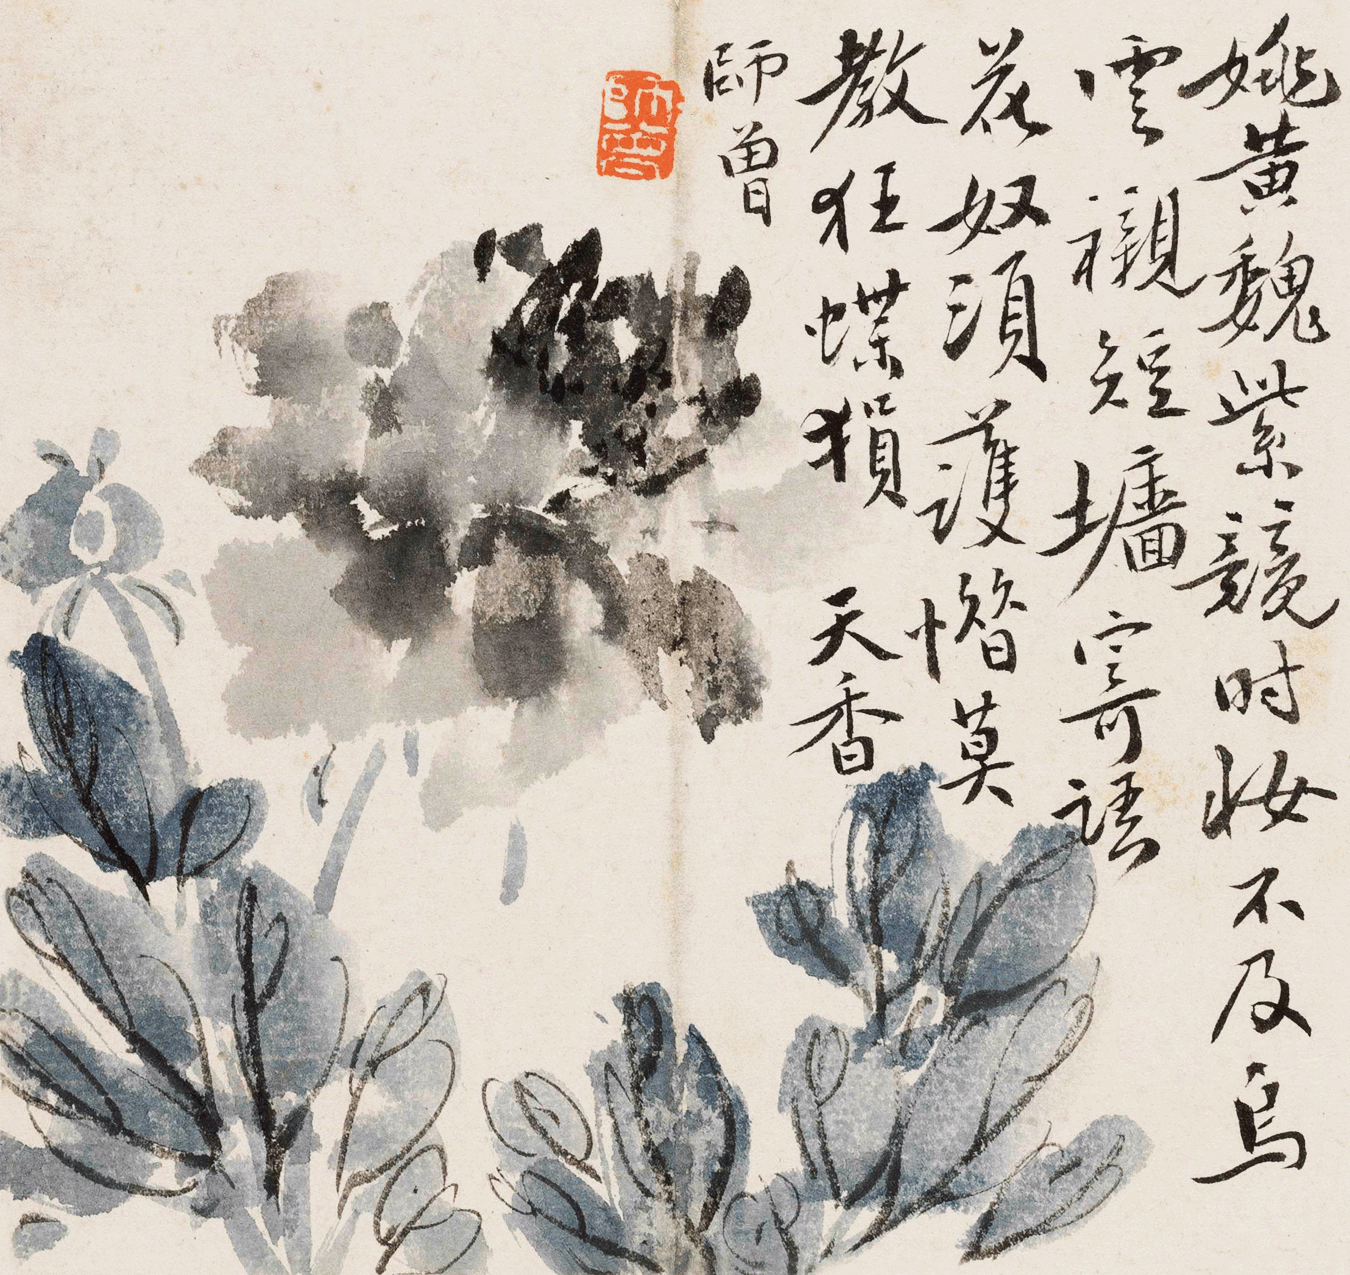 姚黄魏紫競时妆不及烏
雲襯短墻寄語
花奴須護惜莫
教狂蝶損天香
師曾
師曾